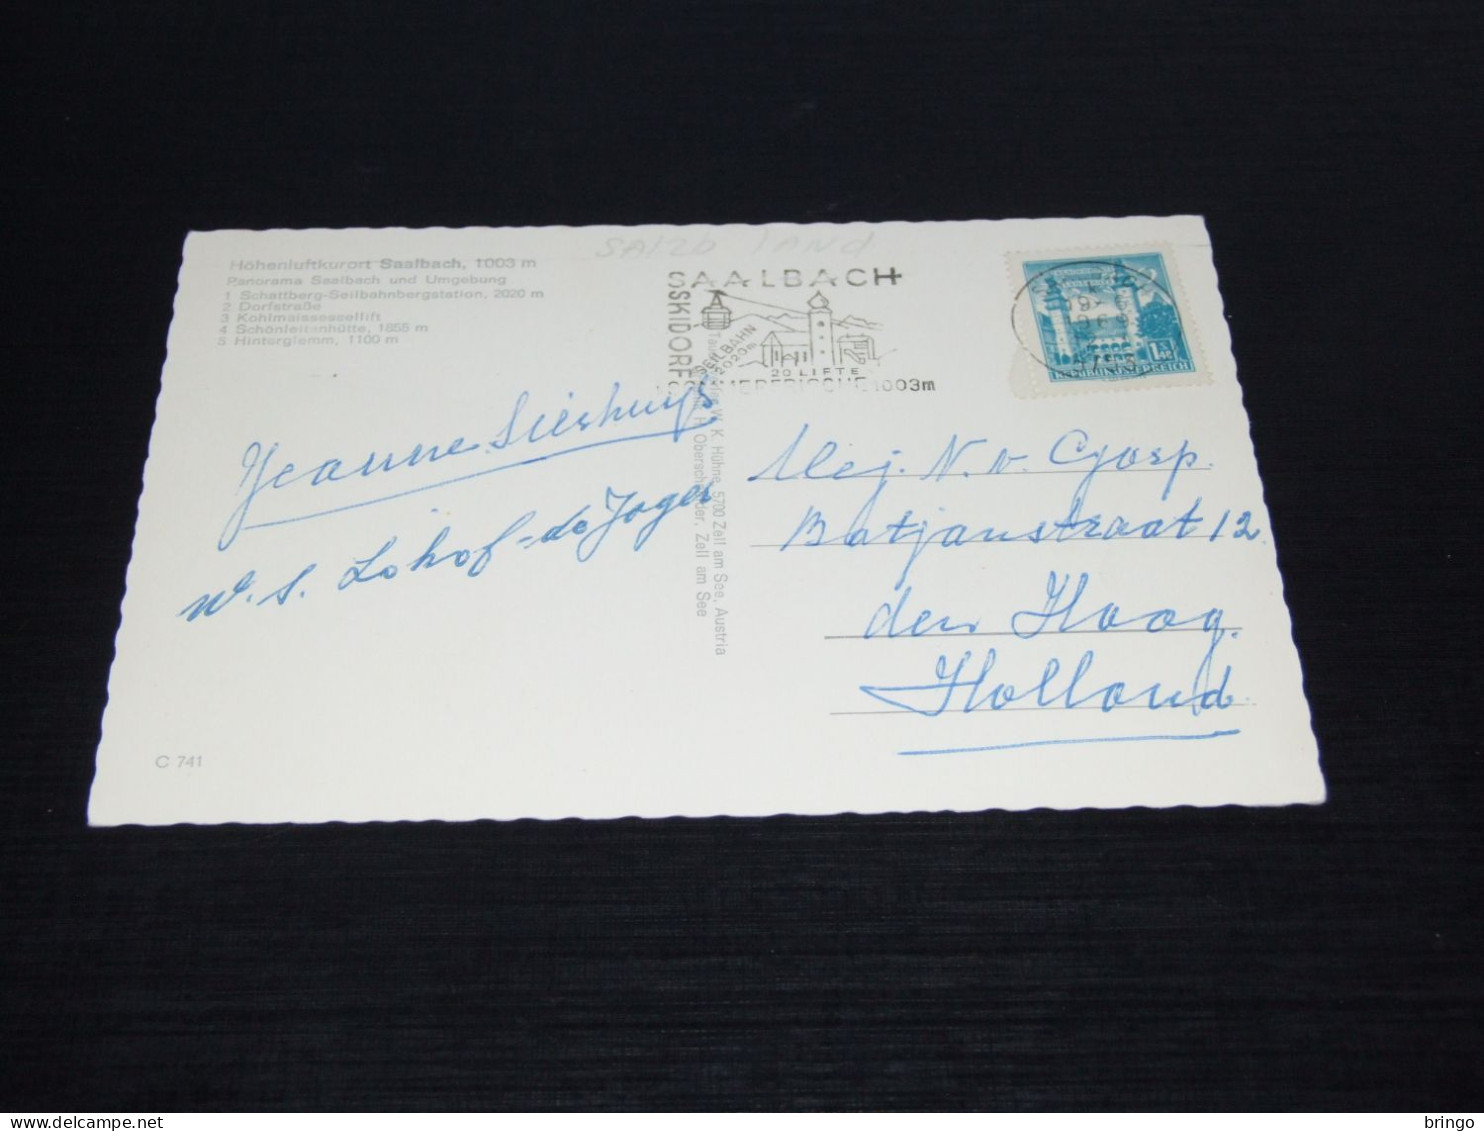 SALZB LAND
Höhenluftkurort Saalbach, 1003 m
Panorama Saalbach und Umgebung
1 Schattberg-Seilbahnbergstation, 2020 m
2 Dorfstraße
3 Kohlmaissessellift
4 Schönleitenhütte, 1855 m
5 Hinterglemm, 1100 m
SAALBACH
SKIDORF
SEILBAHN
2020m
20 LIFTE
SOMMERFRISCHE 1003m
REPUBLIK ÖSTERREICH
Jeanne
W. S. Lohof-de Jager
W. K. Hühne, 5700 Zell am See, Austria
Oberschneider, Zell am See
Mej. N. v.
Batjanstraat 12
den Haag.
Holland.
C 741
bringo